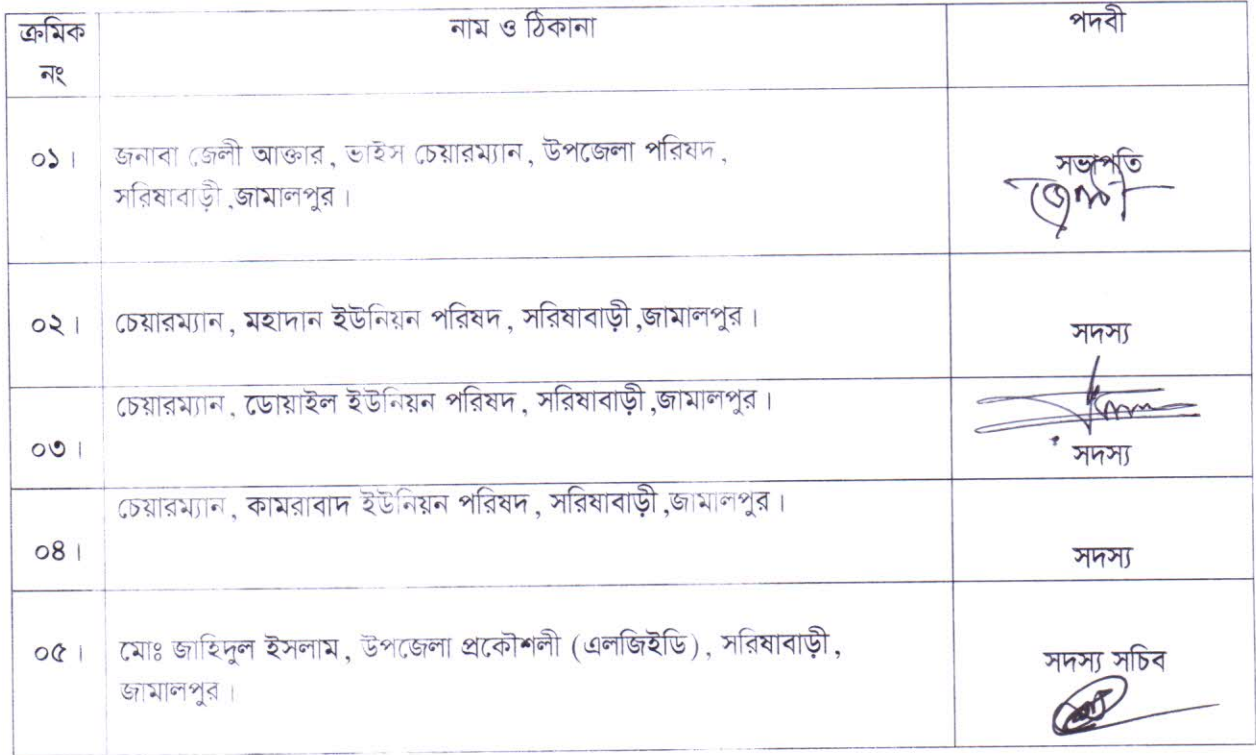 ক্রমিক নং নাম ও ঠিকানা পদবী
০১। জনাবা জেলী আক্তার, ভাইস চেয়ারম্যান, উপজেলা পরিষদ,
সরিষাবাড়ী,জামালপুর। সভাপতি
জেলী
০২। চেয়ারম্যান, মহাদান ইউনিয়ন পরিষদ, সরিষাবাড়ী,জামালপুর। সদস্য
চেয়ারম্যান, ডোয়াইল ইউনিয়ন পরিষদ, সরিষাবাড়ী,জামালপুর।
০৩। সদস্য
চেয়ারম্যান, কামরাবাদ ইউনিয়ন পরিষদ, সরিষাবাড়ী,জামালপুর।
০৪। সদস্য
০৫। মোঃ জাহিদুল ইসলাম, উপজেলা প্রকৌশলী (এলজিইডি), সরিষাবাড়ী,
জামালপুর। সদস্য সচিব